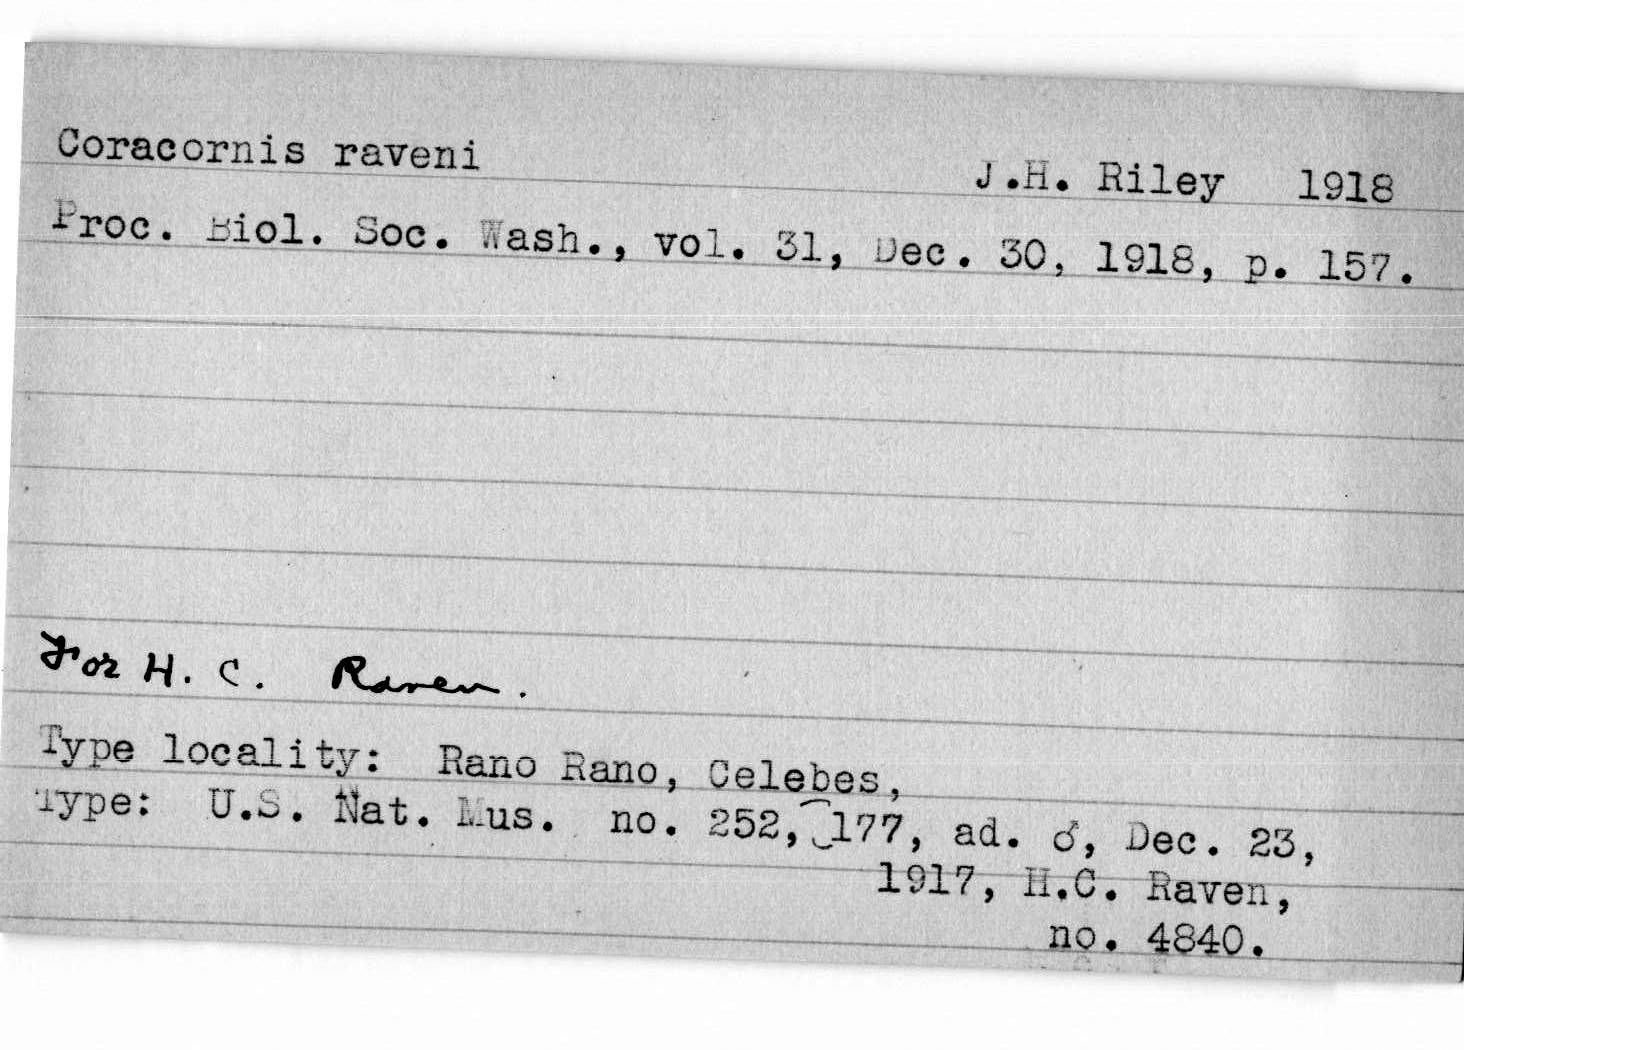 Coracornis raveni J.H. Riley 1918
Proc. Biol. Soc. Wash., vol. 31, Dec. 30, 1918, p. 157.
For H. C. Raven.
Type locality: Rano Rano, Celebes,
Type: U.S. Nat. Mus. no. 252,177, ad. ♂, Dec. 23,
1917, H.C. Raven,
no. 4840.